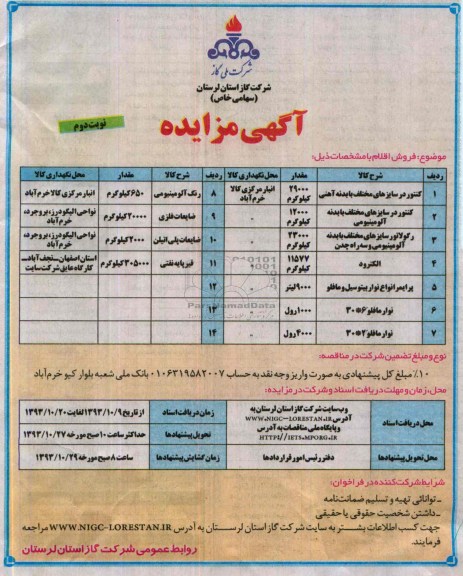 شرکت ملی گاز
شرکت گاز استان لرستان
(سهامی خاص)
آگهی مزایده
نوبت دوم
موضوع: فروش اقلام با مشخصات ذیل:
ردیف شرح کالا مقدار محل نگهداری کالا ردیف شرح کالا مقدار محل نگهداری کالا
۱ کنتور در سایزهای مختلف با بدنه آهنی ۲۹۰۰۰ کیلوگرم انبار مرکزی کالا خرم آباد ۸ رنگ آلومینیومی ۶۵۰ کیلوگرم انبار مرکزی کالا خرم آباد
۲ کنتور در سایزهای مختلف با بدنه آلومینیومی ۱۲۰۰۰ کیلوگرم ۹ ضایعات فلزی ۲۰۰۰۰ کیلوگرم نواحی الیگودرز، بروجرد، خرم آباد
۳ رگولاتور سایزهای مختلف با بدنه آلومینیومی و سه راه چدن ۲۳۰۰۰ کیلوگرم ۱۰ ضایعات پلی اتیلن ۲۰۰۰ کیلوگرم نواحی الیگودرز، بروجرد، خرم آباد
۴ الکترود ۱۱۵۷۷ کیلوگرم ۱۱ قیر پایه نفتی ۳۰۵۰۰۰ کیلوگرم استان اصفهان_نجف آباد_ کارگاه عایق شرکت سایت
۵ پرایمر انواع نوار پیتوسیل و مافلو ۹۰۰۰ لیتر ۱۲
۶ نوار مافلو ۶*۳۰ ۱۰۰۰ رول ۱۳
۷ نوار مافلو ۲*۳۰ ۴۰۰۰ رول ۱۴
ParsNamadData
نوع و مبلغ تضمین شرکت در مناقصه:
۱۰٪ مبلغ کل پیشنهادی به صورت واریز وجه نقد به حساب ۰۱۰۶۳۱۹۵۸۲۰۰۷ بانک ملی شعبه بلوار کیو خرم آباد
محل، زمان و مهلت دریافت اسناد و شرکت در مزایده:
محل دریافت اسناد وب سایت شرکت گاز استان لرستان به آدرس WWW.NIGC-LORESTAN.IR و پایگاه ملی مناقصات به آدرس HTTP://IETS.MPORG.IR زمان دریافت اسناد از تاریخ ۱۳۹۳/۱۰/۹ لغایت ۱۳۹۳/۱۰/۲۰
تحویل پیشنهادها حداکثر ساعت ۱۰ صبح مورخه ۱۳۹۳/۱۰/۲۷
محل تحویل پیشنهادها دفتر رئیس امور قراردادها زمان گشایش پیشنهادها ساعت ۸ صبح مورخه ۱۳۹۳/۱۰/۲۹
شرایط شرکت کننده در فراخوان:
_ توانائی تهیه و تسلیم ضمانت نامه
_ داشتن شخصیت حقوقی یا حقیقی
جهت کسب اطلاعات بیشتر به سایت شرکت گاز استان لرستان به آدرس WWW.NIGC-LORESTAN.IR مراجعه
فرمایند.
روابط عمومی شرکت گاز استان لرستان